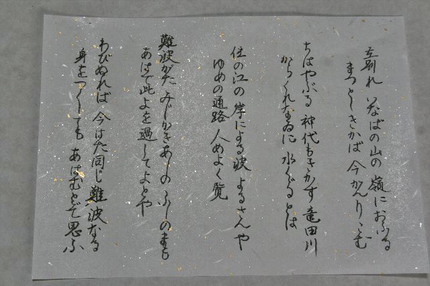 立別れ いなばの山の 嶺におふる
まつとしきかば 今かへりこむ
ちはやぶる 神代もきかず 竜田川
からくれなゐに 水くゞるとは
住の江の 岸による波 よるさへや
ゆめの通路 人めよく覧
難波がた みじかきあしの ふしのまも
あはで此よを 過してよとや
わびぬれば 今はた同じ 難波なる
身をつくしても あはむとぞ思ふ